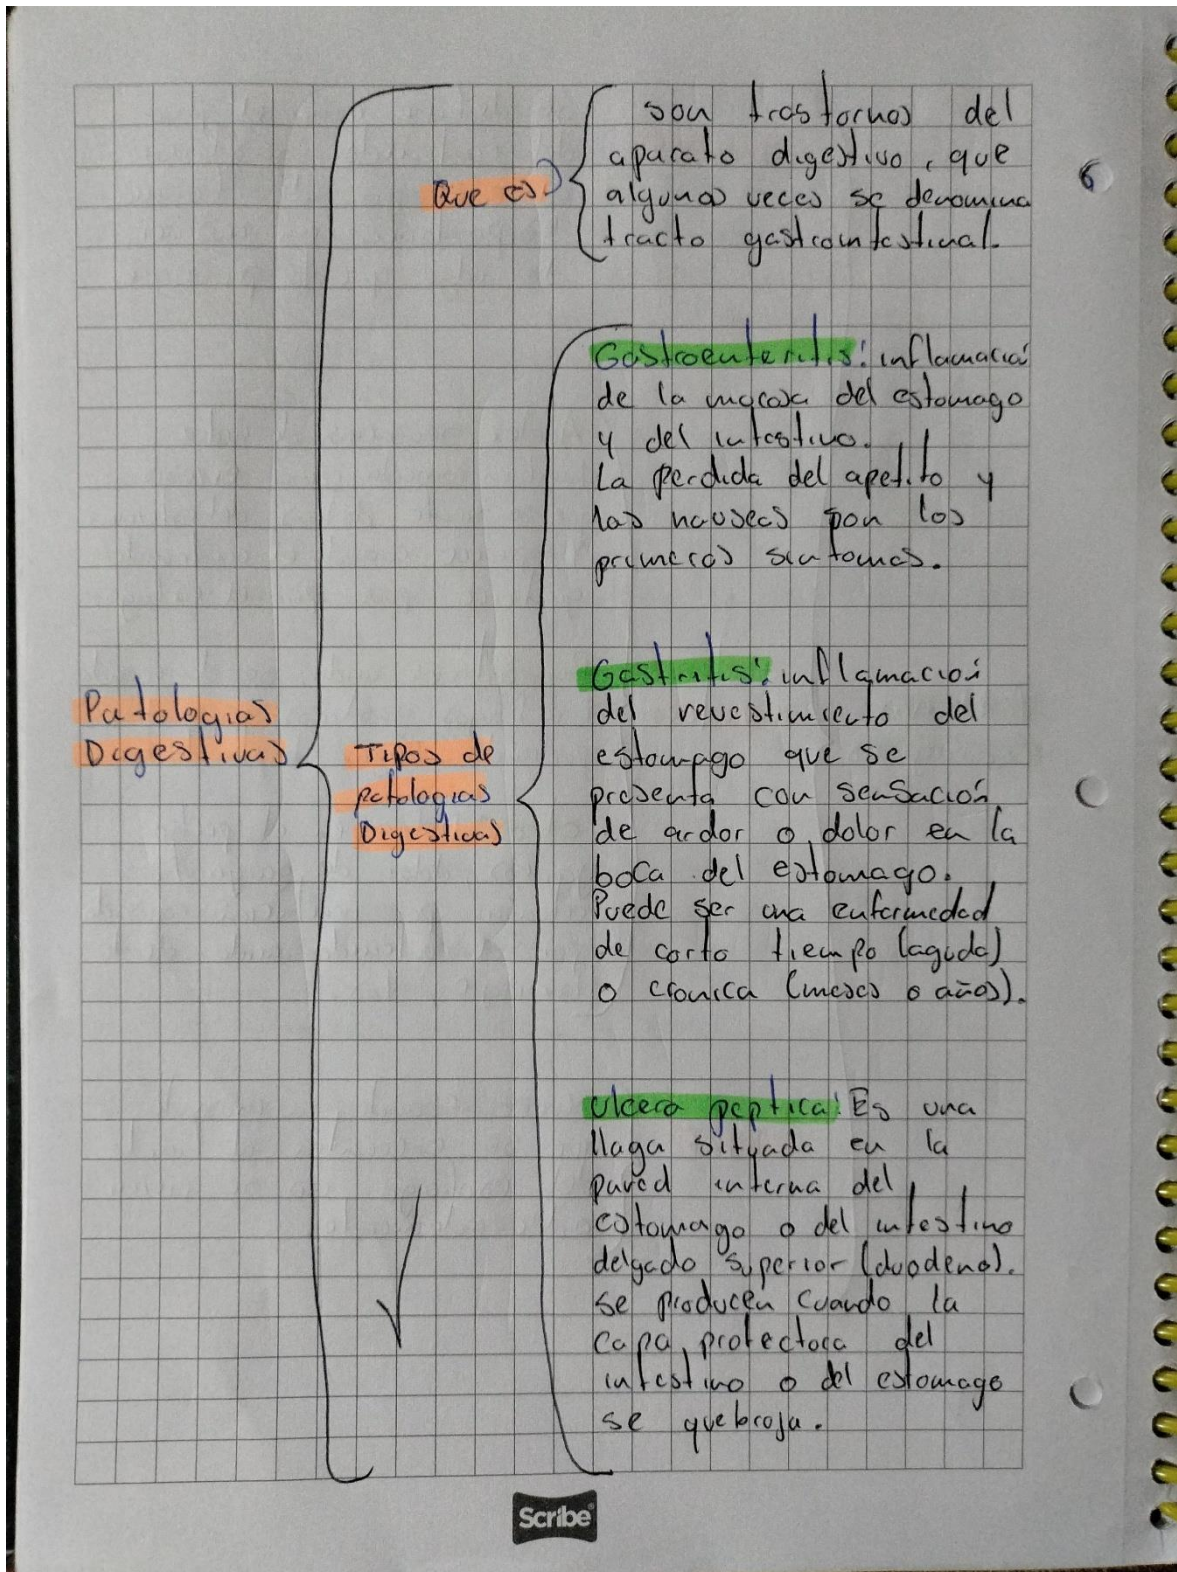 son trastornos del
aparato digestivo, que
Que es?
algunas veces se denomina
tracto gastrointestinal.
6
Gastroenteritis: inflamació
de la mucosa del estomago
y del intestino.
La perdida del apetito y
las nauseas son los
primeros sintomas.
Gastritis: inflamación
del revestimiento del
estomago que se
presenta con sensación
de ardor o dolor en la
boca del estomago.
Puede ser una enfermedad
de corto tiempo (aguda)
o cronica (meses o años).
Patologias
Digestivas
Tipos de
patologias
Digestivas
Ulcera peptica: Es una
llaga situada en la
pared interna del
estomago o del intestino
delgado superior (duodeno).
se producen cuando la
capa protectora del
intestino o del estomago
se quebraja.
Scribe